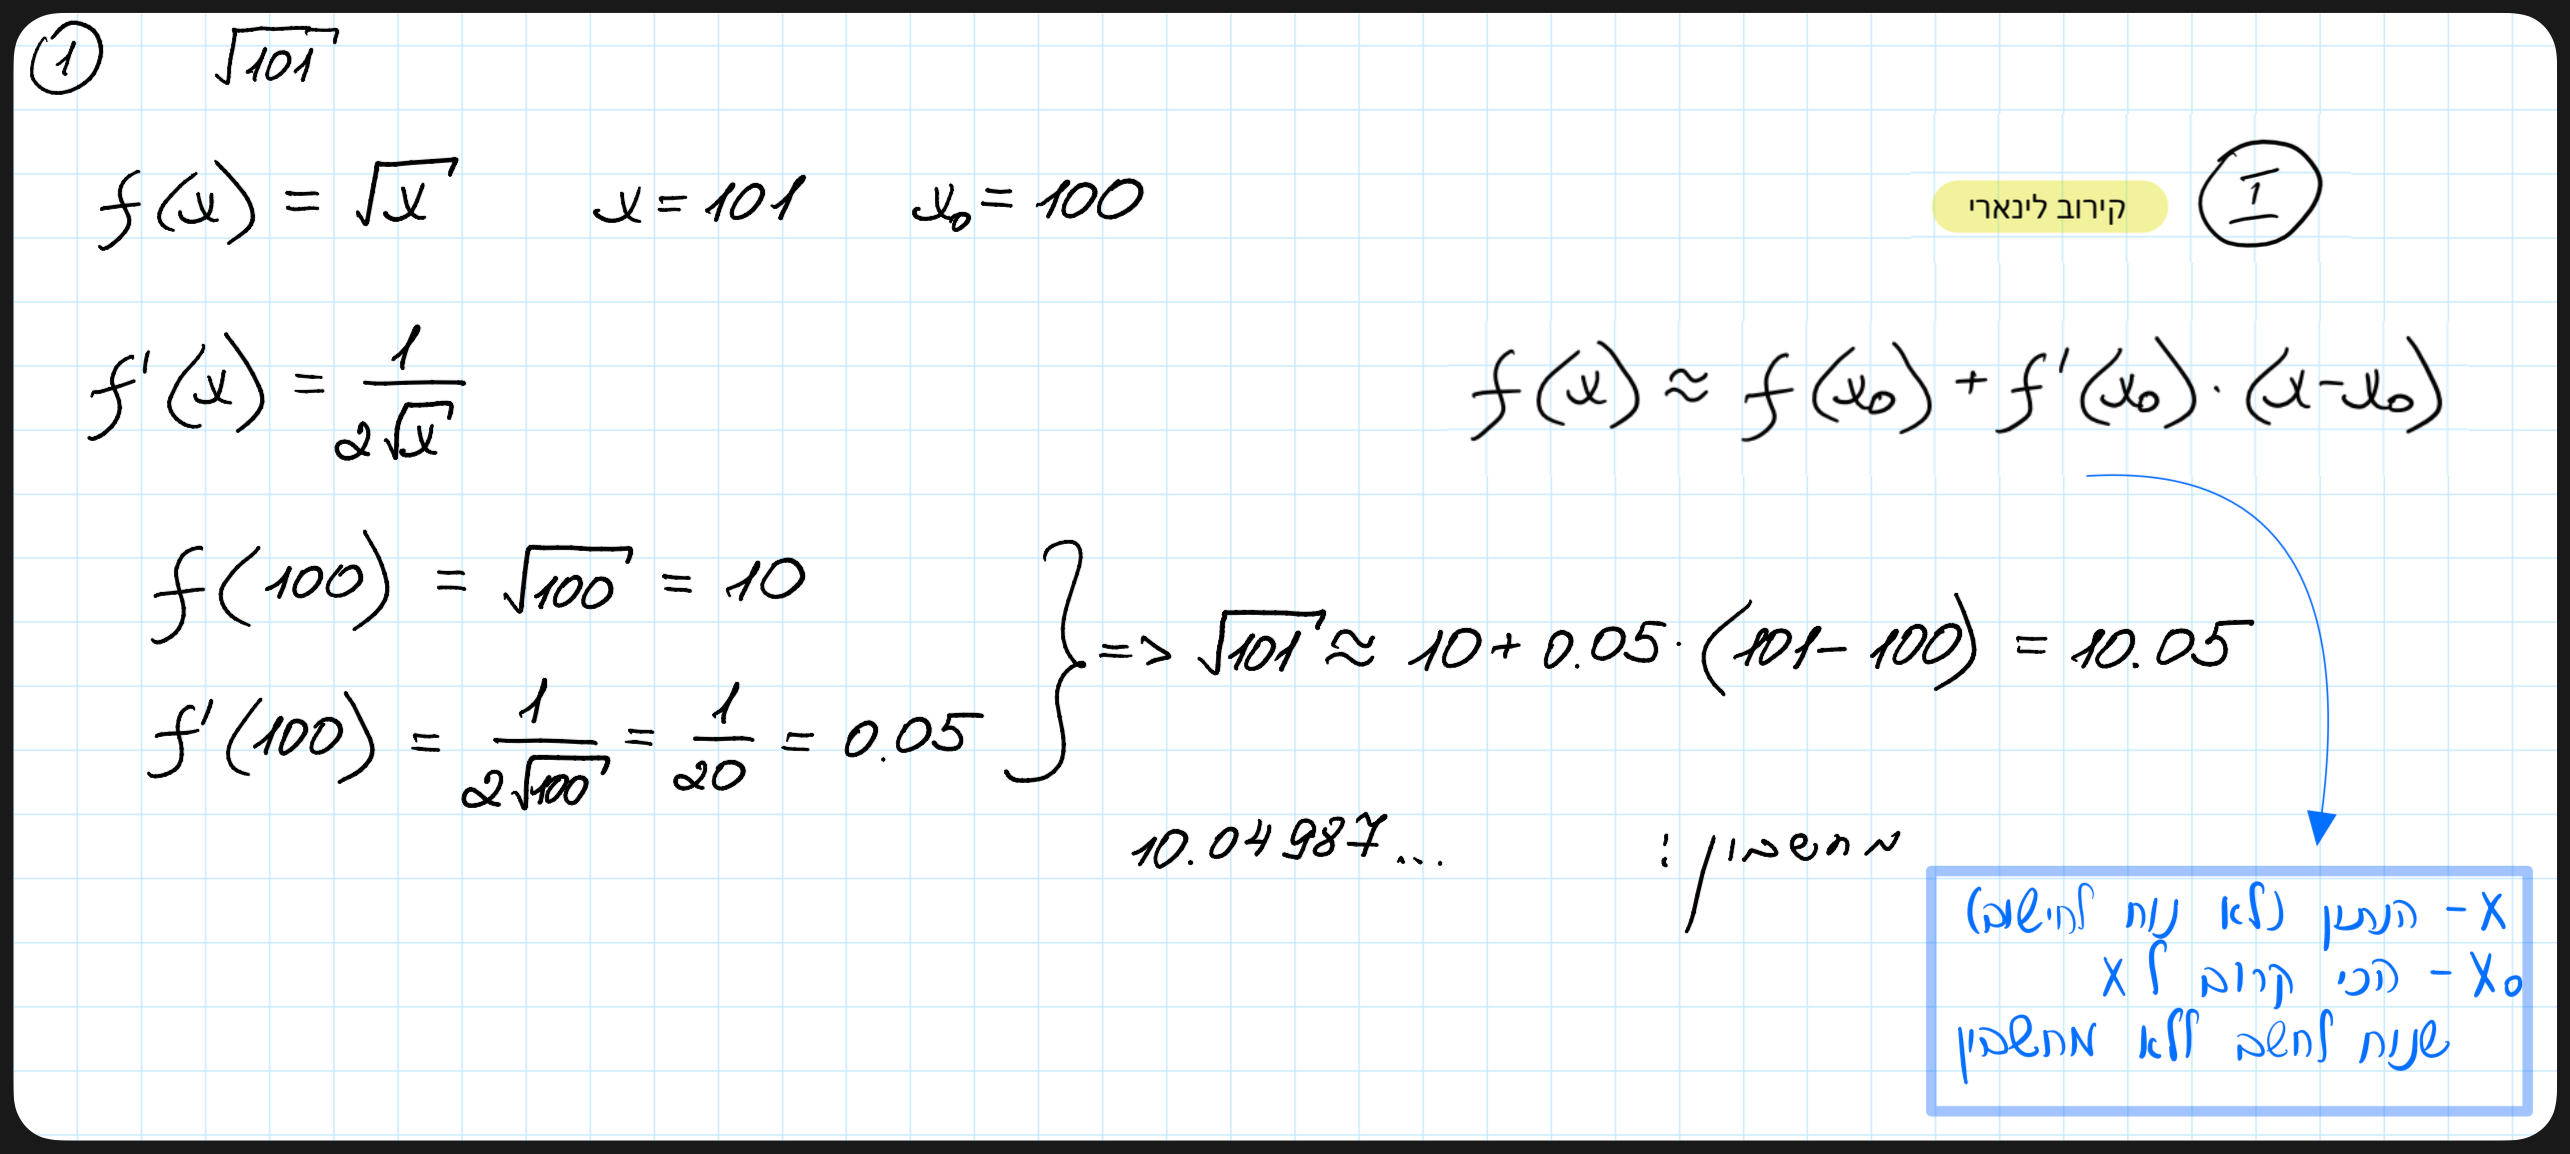 ① √101
f(x) = √x x = 101 x₀ = 100
קירוב לינארי Ⅰ
f'(x) = 1/(2√x)
f(x) ≈ f(x₀) + f'(x₀)·(x-x₀)
f(100) = √100 = 10
f'(100) = 1/(2√100) = 1/20 = 0.05
=> √101 ≈ 10 + 0.05·(101-100) = 10.05
מחשבון: 10.04987...
x - הנתון (לא נוח לחישוב)
x₀ - הכי קרוב ל x
שנוח לחשב ללא מחשבון